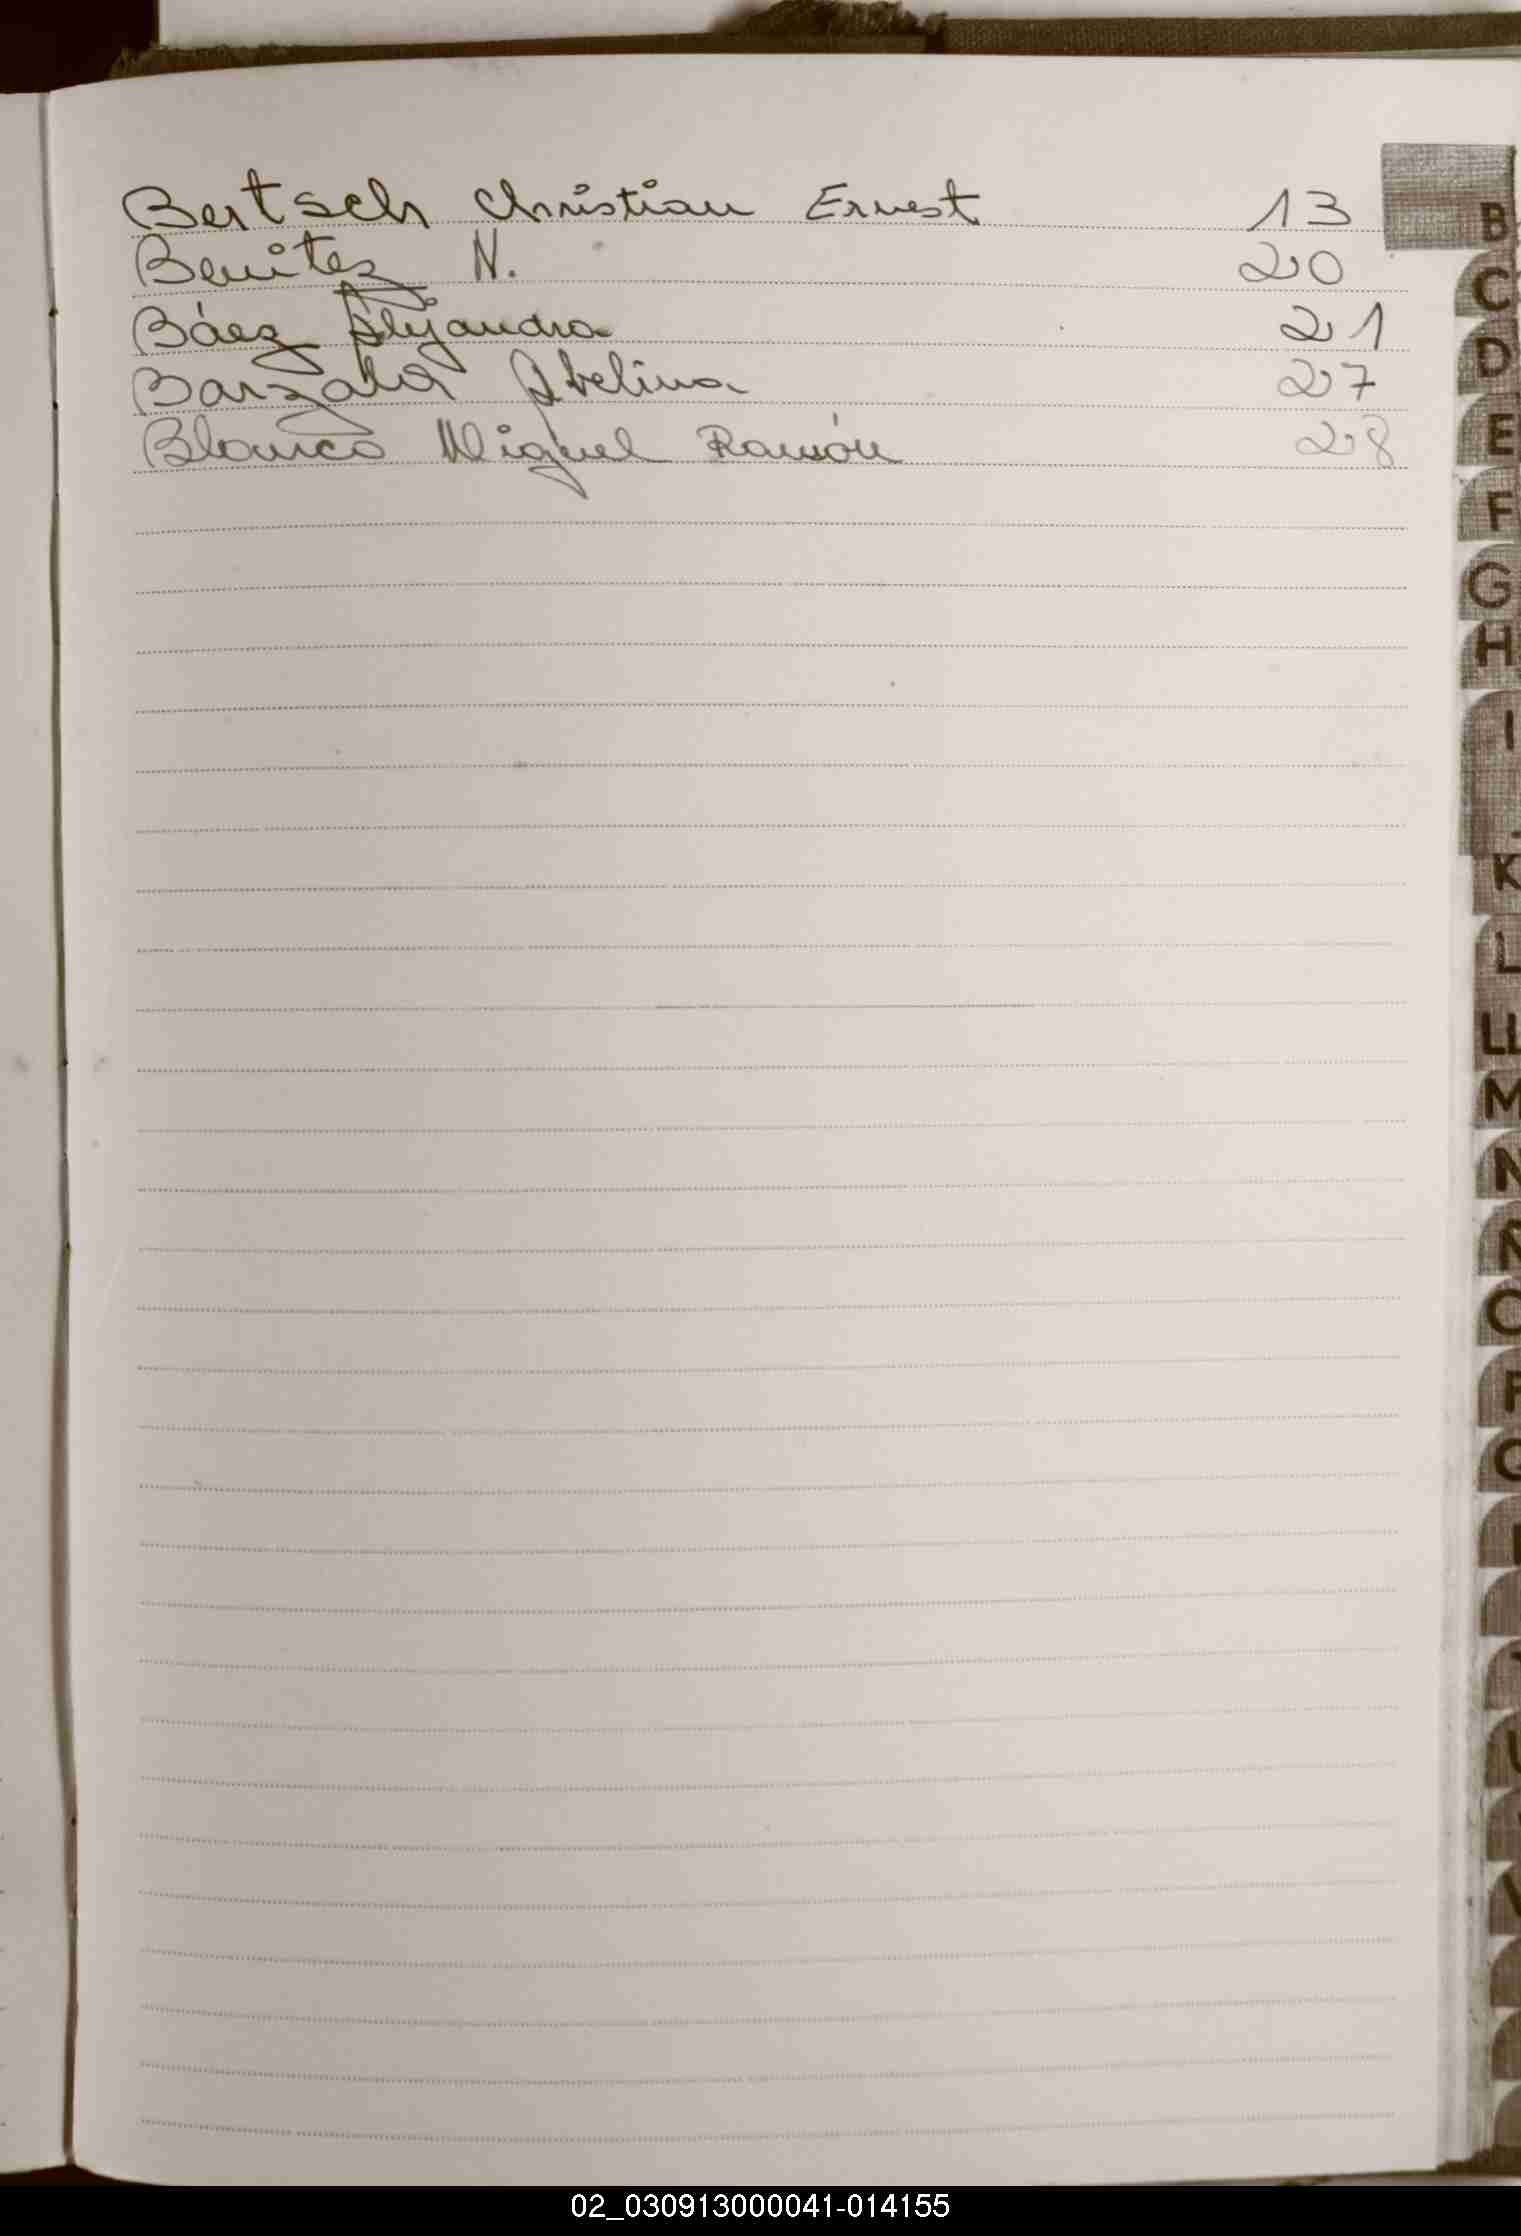 Bertsch Christian Ernest 13
Benitez N. 20
Báez Alejandra 21
Barzala Abelina 27
Blanco Miguel Ramón 28
B
C
D
E
F
G
H
I
K
L
LL
M
N
Ñ
O
P
Q
U
V
02_030913000041-014155